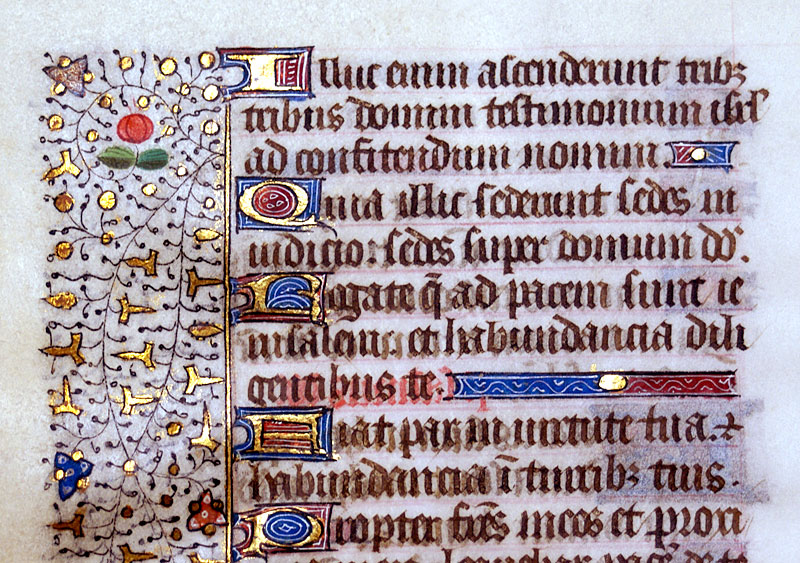 Illuc enim ascenderunt tribꝫ
tribus domini testimonium isrl̄
ad confitendum nomini.
Quia illic sederunt sedes in
iudicio: sedes super domum dd̄.
Rogate q̄ ad pacem sunt ie
rusalem et habundancia dili
gentibus te.
Fiat pax in uirtute tua. ⁊
habundancia ī turribꝫ tuis.
Propter fr̄es meos et proxi